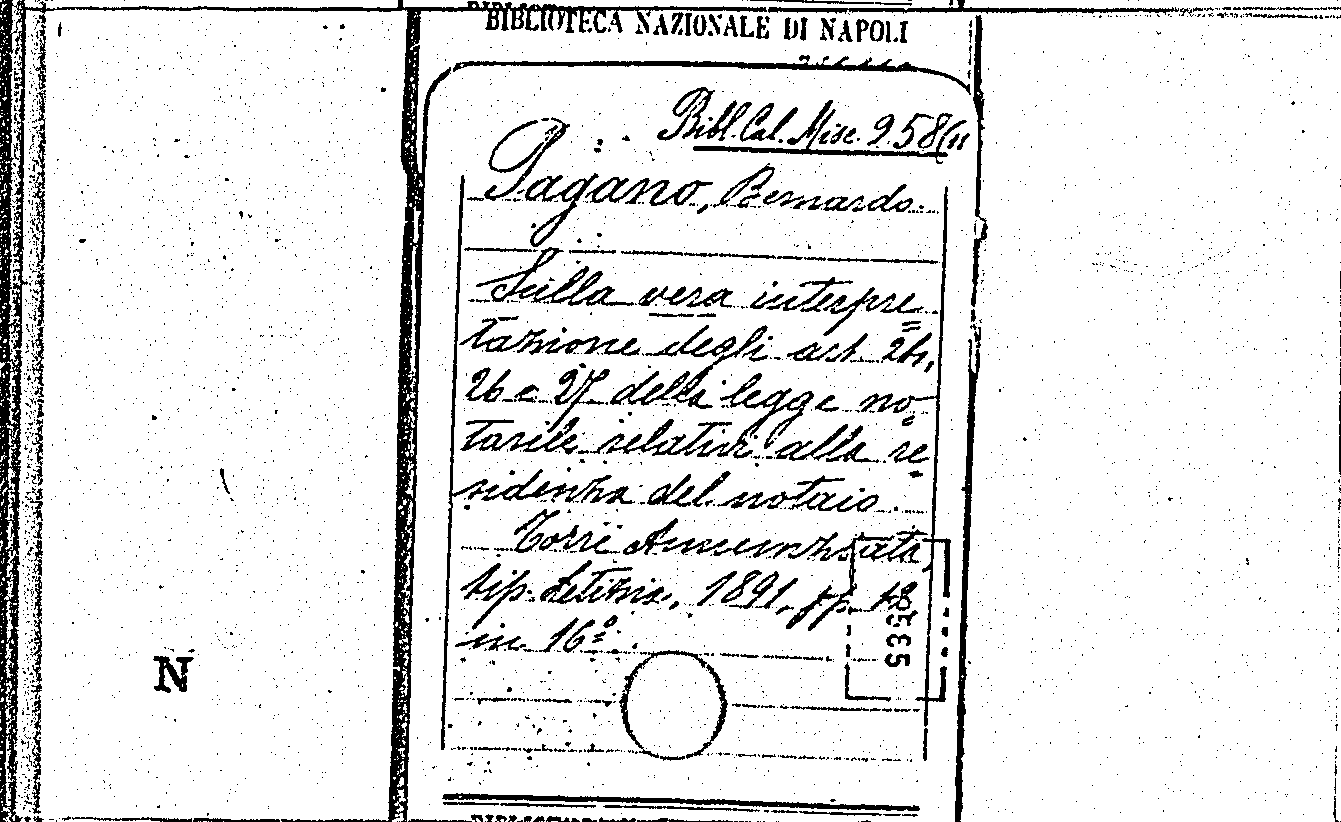 BIBLIOTECA NAZIONALE DI NAPOLI
Bibl. Cal. Misc. 258(11
Pagano, Bernardo.
Sulla vera interpre=
tazione degli art. 24,
26 e 27 della legge no=
tarile relativi alla re=
sidenza del notaio.
Torre Annunziata,
tip. Letizia, 1891, pp. 12,
in 16º.
N